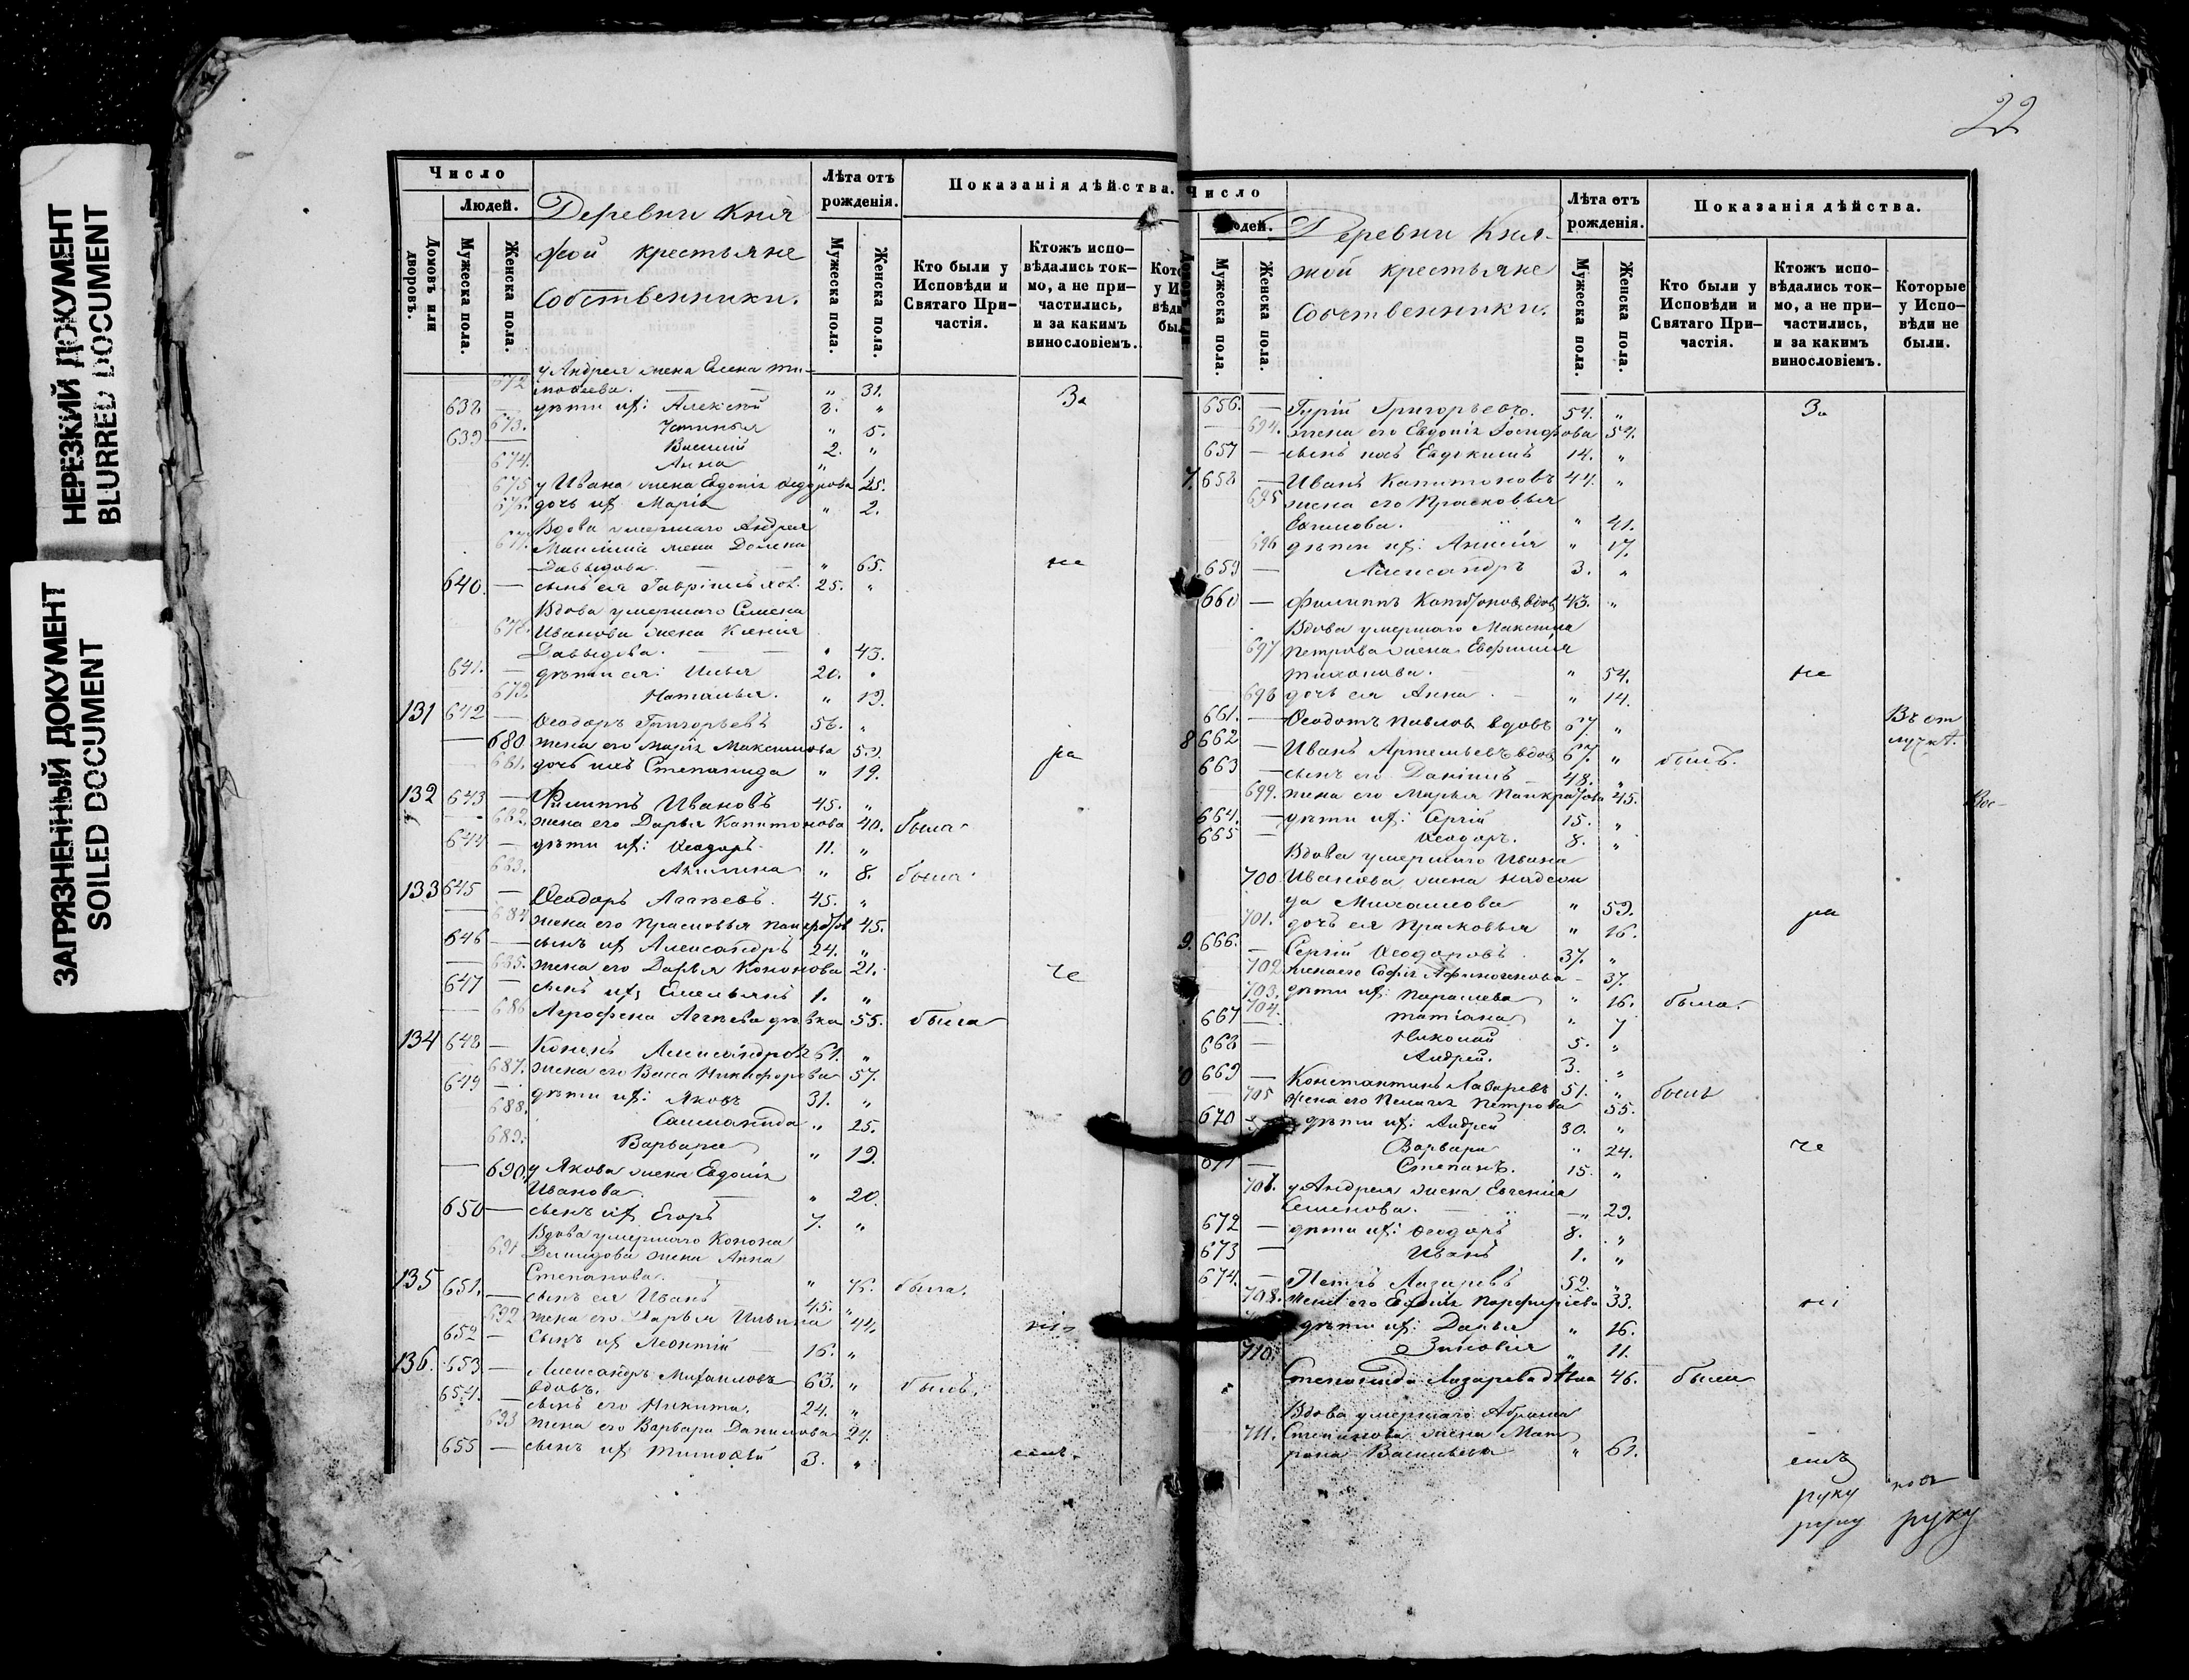 НЕРЕЗКИЙ ДОКУМЕНТ
BLURRED DOCUMENT
ЗАГРЯЗНЕННЫЙ ДОКУМЕНТ
SOILED DOCUMENT
Число
Людей.
Домовъ или дворовъ.
Мужеска пола.
Женска пола.
Деревни Кня
жой крестьяне
собственники.
Лѣта отъ рожденія.
Мужеска пола.
Женска пола.
Показанія дѣйства.
Кто были у Исповѣди и Святаго Причастія.
Ктожъ исповѣдались токмо, а не причастились, и за какимъ винословіемъ.
672 у Андрея жена Елена Ти-
моѳеева. — " 31. За
638 — дѣти их: Алексѣй 8. "
673. Устинья " 5.
639 — Василій 2. "
674. Анна " 1.
675 у Ивана жена Евдокія Ѳедорова 25.
676. дочь их Марія " 2.
Вдова умершаго Андрея
677. жена Домна
Давыдова. — " 65. не
640. — сынъ ея Гавріилъ хол. 25. "
Вдова умершаго Семена
678. Иванова жена Ксенія
Давыдова. — " 43.
641. — дѣти ея: Илья 20. "
679. Наталья. " 19.
131 642 — Ѳеодоръ Григорьевъ 56. "
680 жена его Марія Максимова 59.
681. дочь ихъ Степанида " 19. ра
132 643 — Филиппъ Ивановъ 45. "
682. жена его Дарья Капитонова 40. была
644 — дѣти их: Ѳеодоръ 11. "
683. Акилина " 8. была
133 645 — Ѳеодоръ Агѣевъ. 45. "
684 жена его Прасковья 45.
646 — сынъ их Александръ 24. "
685. жена его Дарья Кононова 21. че
647 — сынъ их Емельянъ 1. "
686 Агрофена Агѣева дѣвка 55. была
134 648 — Кононъ Александровъ 61. "
687. жена его Васса Никифорова 57.
649 — дѣти их: Яковъ 31. "
688. " 25.
689. Варвара " 19.
690. у Якова жена Евдокія
Иванова — " 20.
650 — сынъ их Егоръ 7. "
Вдова умершаго Конона
691 Демидова жена Анна
Степанова. — " была.
135 651. — сынъ ея Иванъ 45. "
692 жена его Дарья Ильина 44.
652 — сынъ их Леонтій 16. "
136. 653 — Александръ Михаиловъ 63. " былъ.
вдовъ.
654. — сынъ его Никита. 24. "
693 жена его Варвара Данилова 24.
655 — сынъ их Тимоѳей 3. "
22
Число
Мужеска пола.
Женска пола.
Деревни Кня-
жой крестьяне
Собственники.
Лѣта отъ рожденія.
Мужеска пола.
Женска пола.
Показанія дѣйства.
Кто были у Исповѣди и Святаго Причастія.
Ктожъ исповѣдались токмо, а не причастились, и за какимъ винословіемъ.
Которые у Исповѣди не были.
656. — Гурій Григорьевъ. 54. " За
694. жена его Евдокія Іосифова 54.
657 — сынъ ихъ Евдокимъ 14. "
7. 658 — Иванъ Капитоновъ 44. "
695 жена его Прасковья
Екимова. " 41.
696 дѣти их: " 17.
659 — Александръ 3. "
660 — Филиппъ Капитонов, вдов. 43. "
Вдова умершаго Максима
697 Петрова жена Евфимія
Тихонова. — " 54. не
698 дочь ея Анна. — " 14.
661. — Ѳеодотъ Павлов. вдовъ 67. " Въ от
лучкѣ.
8 662 — Иванъ Артемьевъ вдов. 67. " былъ.
663 — сынъ его Даніилъ 48. "
699. жена его Марья Панкратова 45.
664. — дѣти их: Сергій 15. "
665 — Ѳеодоръ. 8. "
Вдова умершаго Ивана
700. Иванова жена Надеж
да Михаилова " 59. ра
701. дочь ея Прасковья " 16.
9. 666. — Сергій Ѳеодоровъ 37. "
702 жена его Софія Афиногенова — 37.
703. дѣти их: Параскева " 16. была.
704. Татіана " 7
667 — Николай 5. "
668 — Андрей. 3. "
669 — Константинъ Лазаревъ 51. " былъ
705 жена его Пелагея Петрова 55.
670 дѣти их: Андрей 30. "
Варвара " 24. че
671 — Степанъ. 15. "
707. у Андрея жена Евгенія
Семенова. — " 29.
672 — дѣти их: Ѳеодоръ 8. "
673 — Иванъ 1. "
674. — Петръ Лазаревъ 52. "
708. жена его Порфиріева 33.
дѣти их: Дарья " 16.
710. Зиновія " 11.
Степанида Лазарева дѣвка 46. была
Вдова умершаго Абрама
711. Степанова жена Мат
рона Васильева " 61.
руку
руку